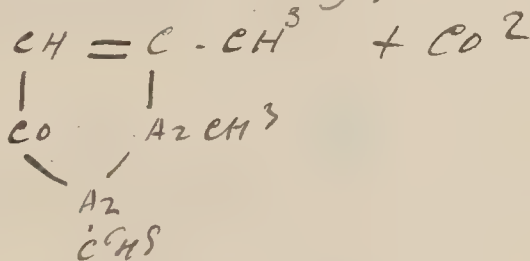 CH = C - CH³ + CO²
CO AzCH³
Az
C⁶H⁵